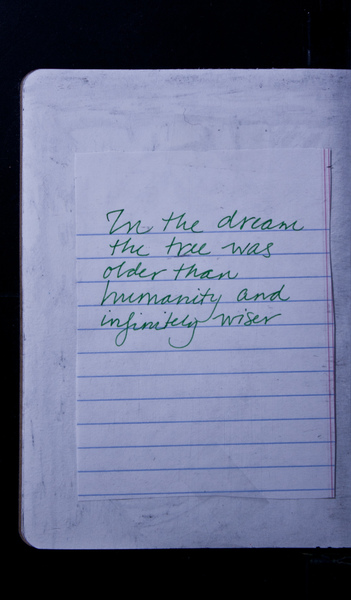 In the dream
the tree was
older than
humanity and
infinitely wiser